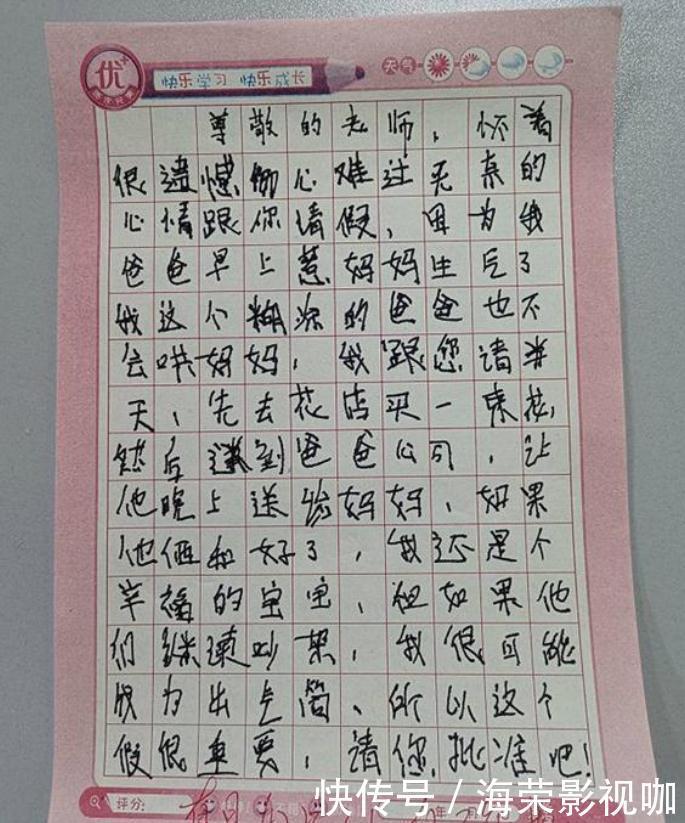 优
快乐学习 快乐成长
天气
尊敬的老师，怀着
很遗憾伤心难过无奈的
心情跟你请假，因为我
爸爸早上惹妈妈生气了
我这个糊涂的爸爸也不
会哄妈妈，我跟您请半
天，先去花店买一束花，
然后送到爸爸公司，让
他晚上送给妈妈，如果
他俩和好了，我还是个
幸福的宝宝，但如果他
们继续吵架，我很可能
成为出气筒、所以这个
假很重要，请你批准吧！
评分：
年 月
快传号／海荣影视咖